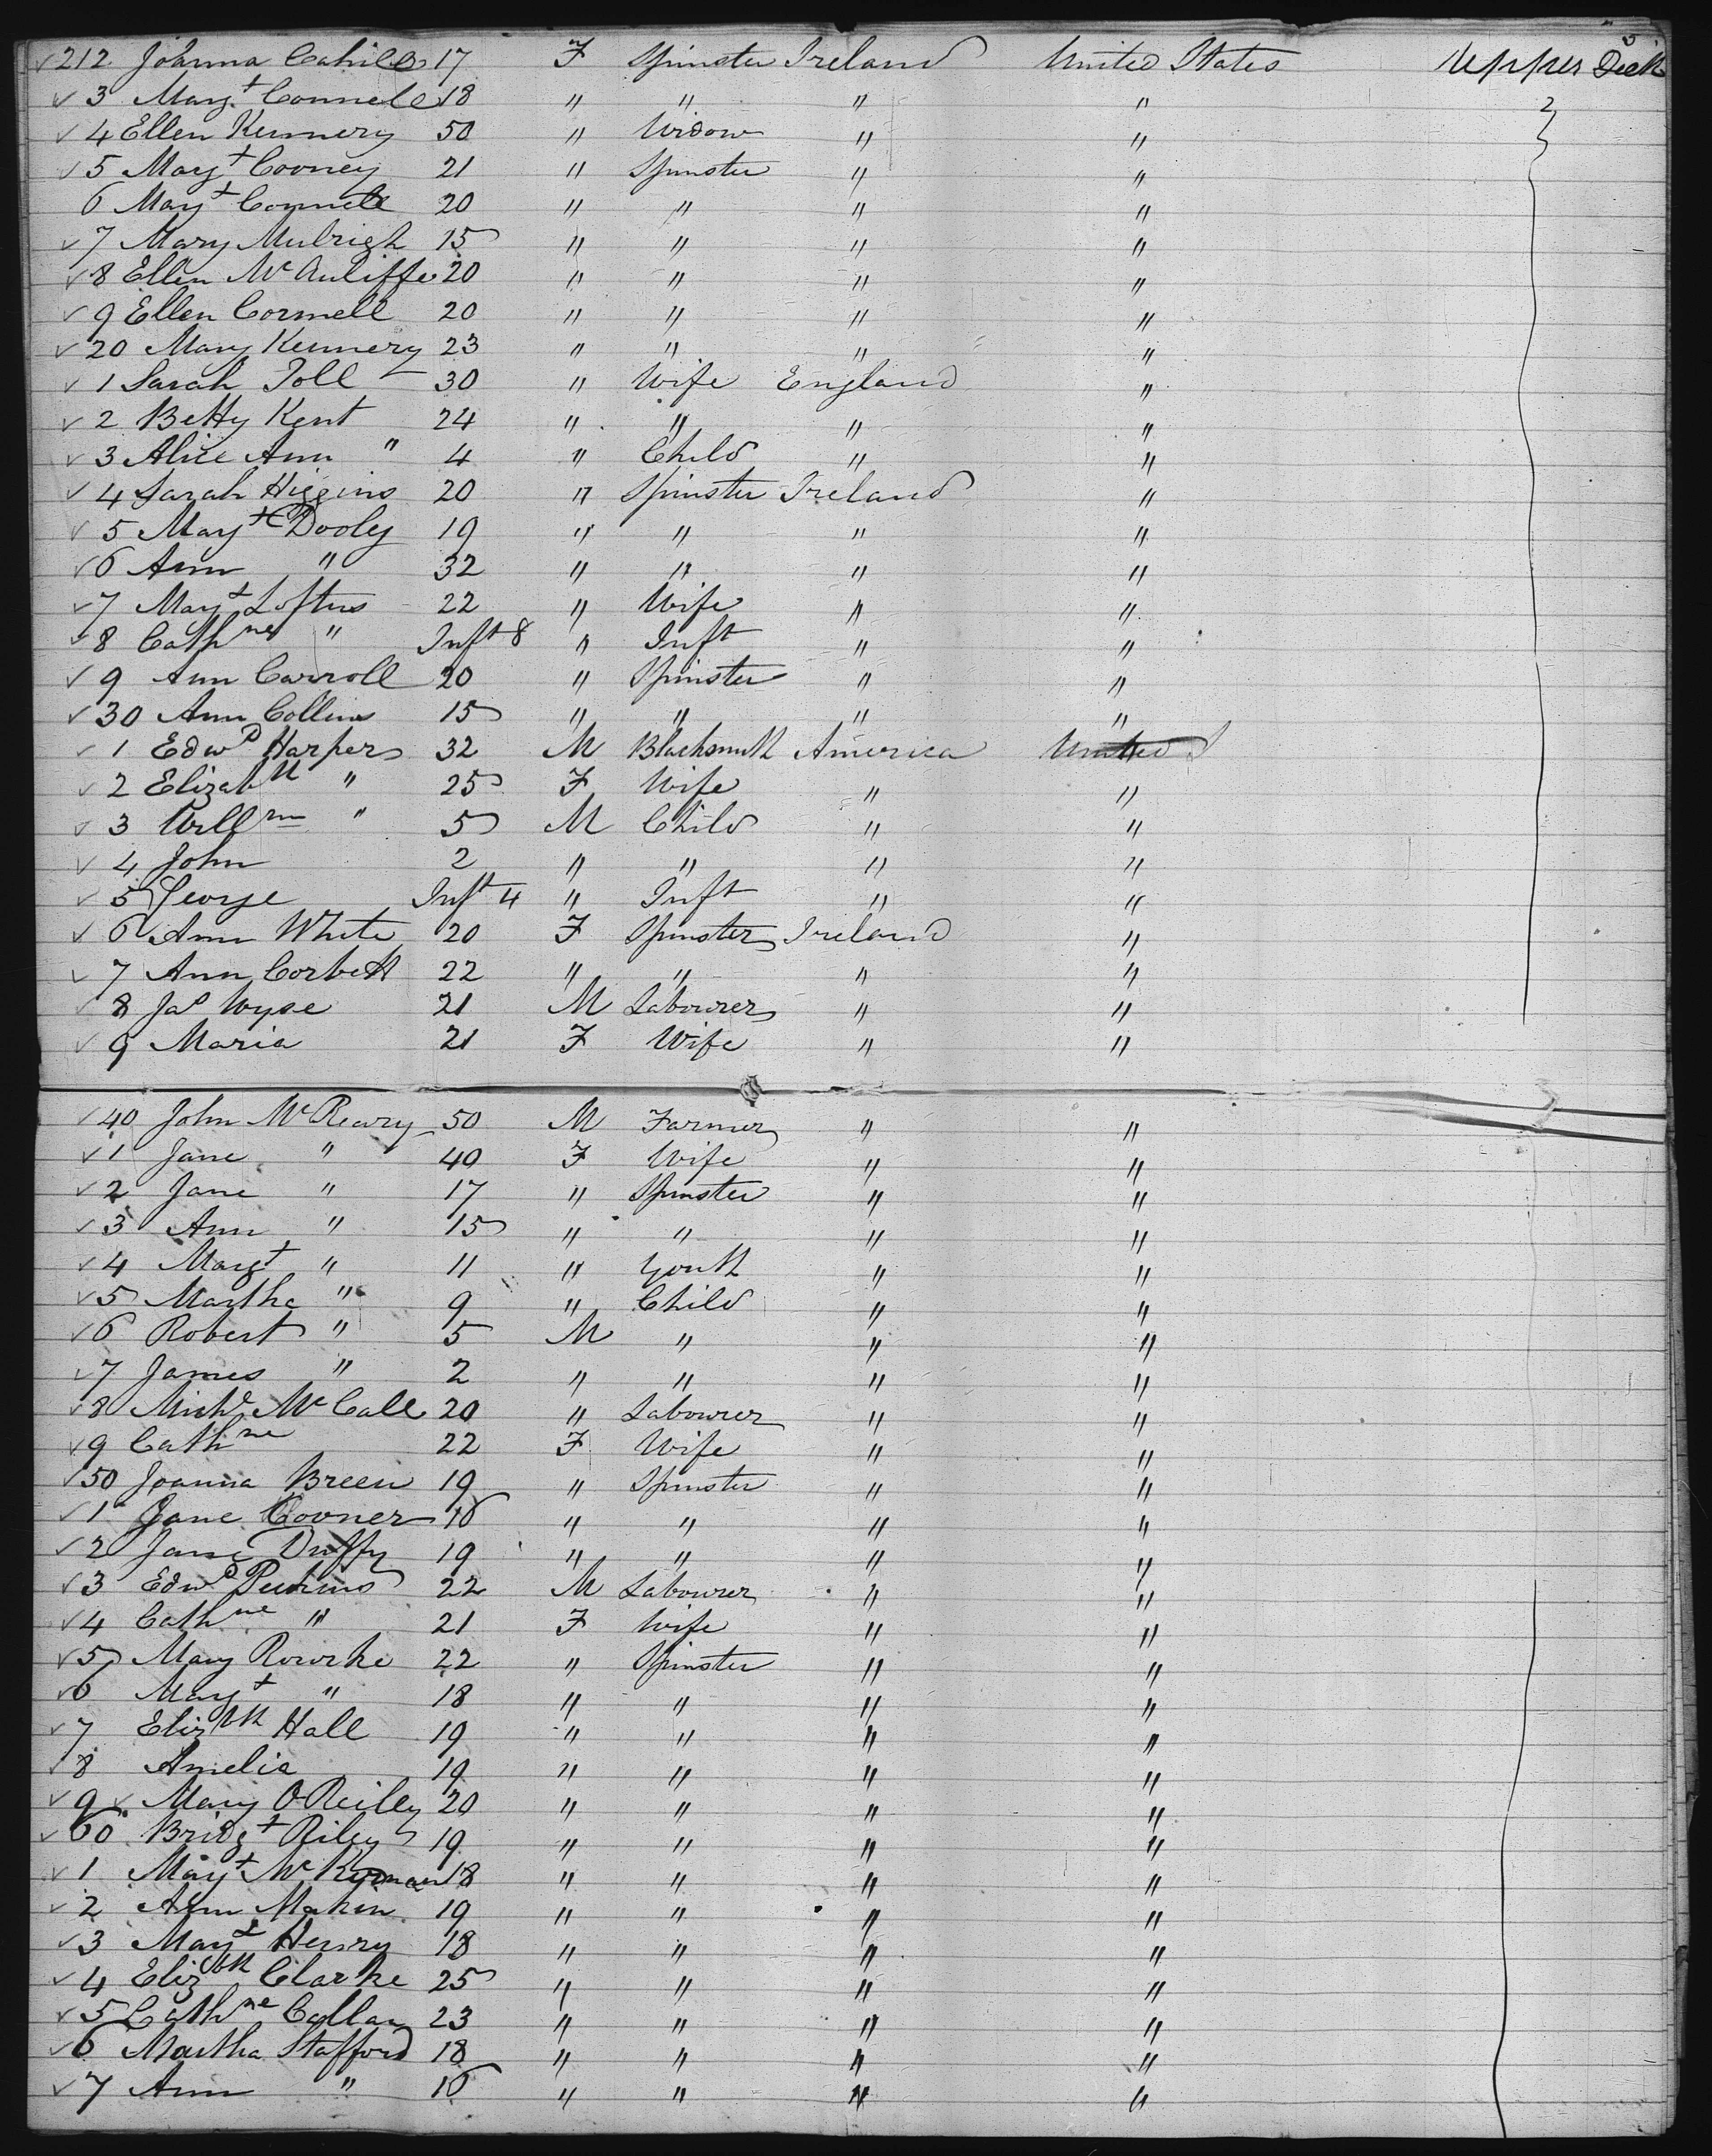 212 Johanna Cahill 17 F Spinster Ireland United States Upper Deck
3 Margt Connell 18 " " " "
4 Ellen Kennery 50 " Widow " "
5 Margt Cooney 21 " Spinster " "
6 Margt Connell 20 " " " "
7 Mary Mulrigh 15 " " " "
8 Ellen McAuliffe 20 " " " "
9 Ellen Cormell 20 " " " "
20 Mary Kennery 23 " " " "
1 Sarah Toll 30 " Wife England "
2 Betty Kent 24 " " " "
3 Alice Ann " 4 " Child " "
4 Sarah Higgins 20 " Spinster Ireland "
5 Margt Dooly 19 " " " "
6 Ann " 32 " " " "
7 Margt Loftus 22 " Wife " "
8 Cathne " Inft 8 " Inft " "
9 Ann Carroll 20 " Spinster " "
30 Ann Collins 15 " " " "
1 Edwd Harper 32 M Blacksmith America United S
2 Elizabth " 25 F Wife " "
3 Willm " 5 M Child " "
4 John 2 " " " "
5 George Inft 4 " Inft " "
6 Ann White 20 F Spinster Ireland "
7 Ann Corbett 22 " " " "
8 Jas Wyse 21 M Labourer " "
9 Maria 21 F Wife " "
40 John McReary 50 M Farmer " "
1 Jane " 40 F Wife " "
2 Jane " 17 " Spinster " "
3 Ann " 15 " " " "
4 Margt " 11 " Youth " "
5 Martha " 9 " Child " "
6 Robert " 5 M " " "
7 James " 2 " " " "
8 Michl McCall 20 " Labourer " "
9 Cathne 22 F Wife " "
50 Joanna Breen 19 " Spinster " "
1 Jane Cooner 16 " " " "
2 Jane Duffy 19 " " " "
3 Edwd Perkins 22 M Labourer " "
4 Cathne " 21 F Wife " "
5 Mary Rourke 22 " Spinster " "
6 Margt " 18 " " " "
7 Elizbth Hall 19 " " " "
8 Amelia 19 " " " "
9 Mary O Reilley 20 " " " "
60 Bridgt Riley 19 " " " "
1 Margt McKernan 18 " " " "
2 Ann Makin 19 " " " "
3 Margt Henry 18 " " " "
4 Elizbth Clarke 25 " " " "
5 Cathne Callan 23 " " " "
6 Martha Stafford 18 " " " "
7 Ann " 16 " " " "